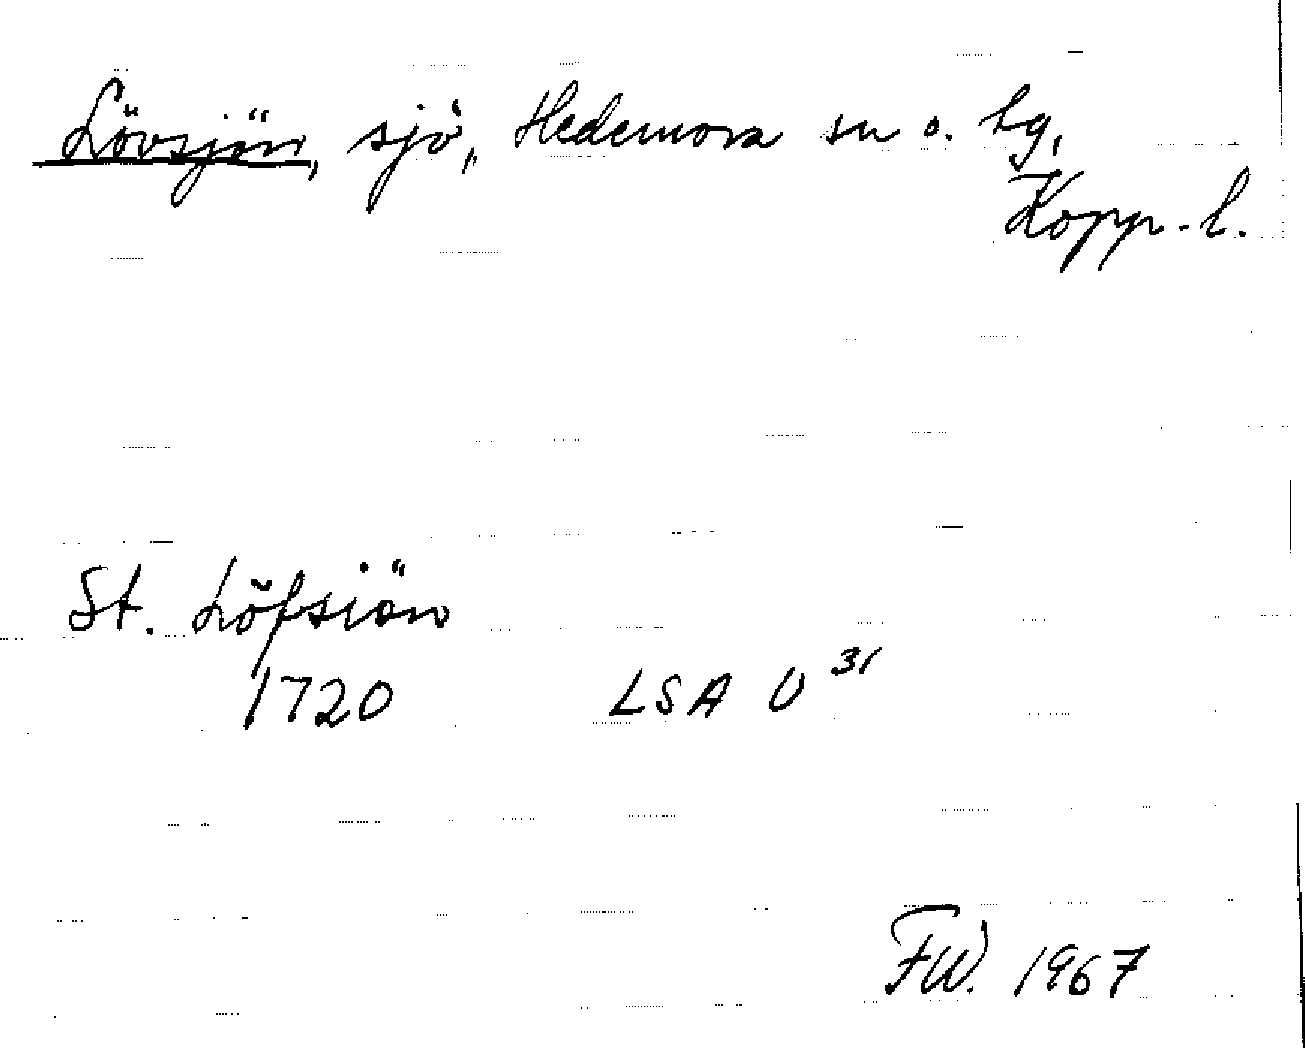 Lövsjön, sjö, Hedemora sn o. tg,
Kopp. l.
St. Löfsiön
1720 LSA U 31
FW. 1967